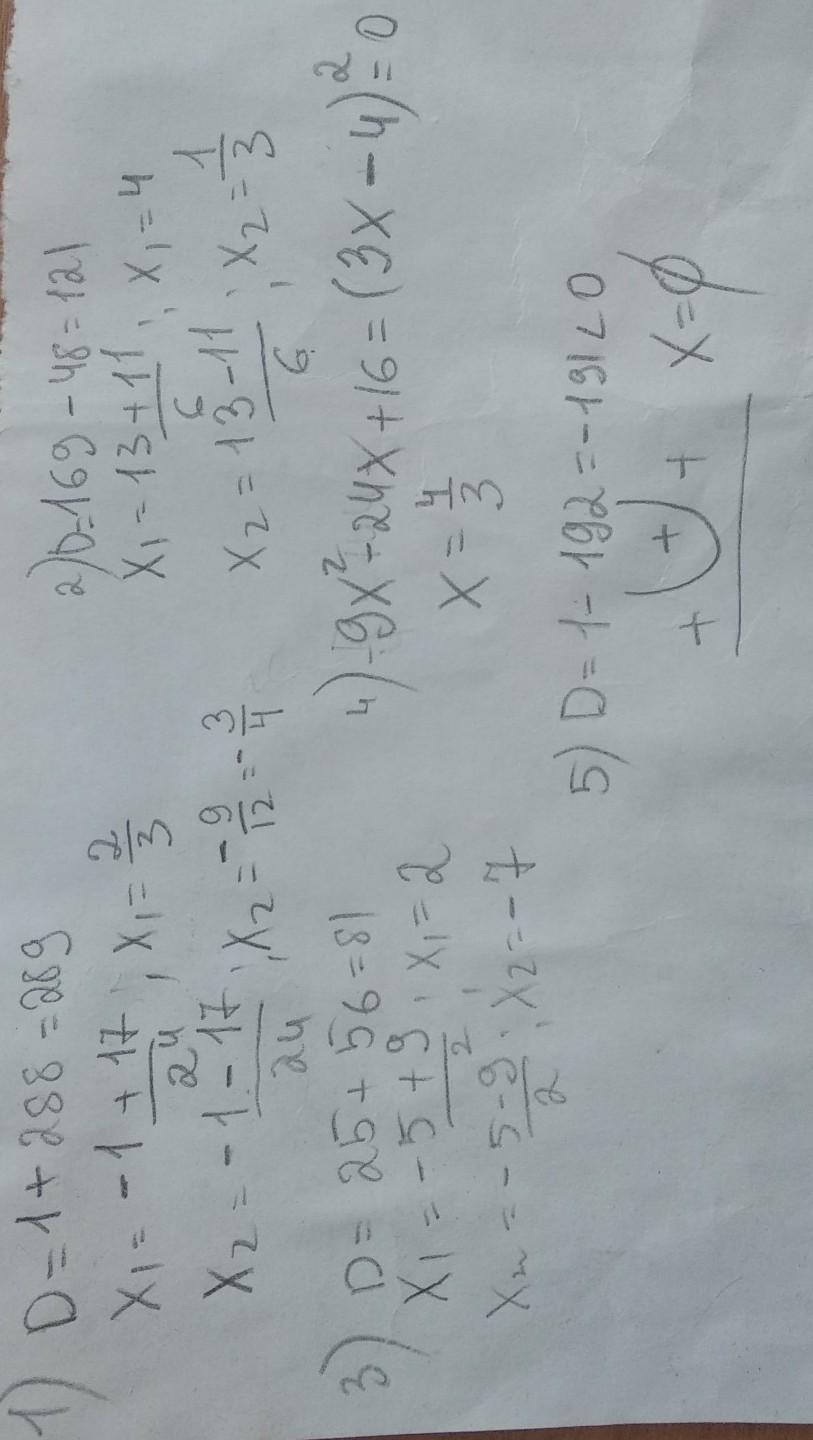 1) D=1+288=289
X₁= -1+17/24, X₁=2/3
X₂= -1-17/24, X₂=-9/12=-3/4
2) D=169-48=121
X₁=13+11/6, X₁=4
X₂=13-11/6, X₂=1/3
3) D= 25+56=81
X₁=-5+9/2, X₁=2
X₂=-5-9/2, X₂=-7
4) -9X²-24X+16=(3X-4)²=0
X=4/3
5) D=1-192=-191<0
+ + + X=∅